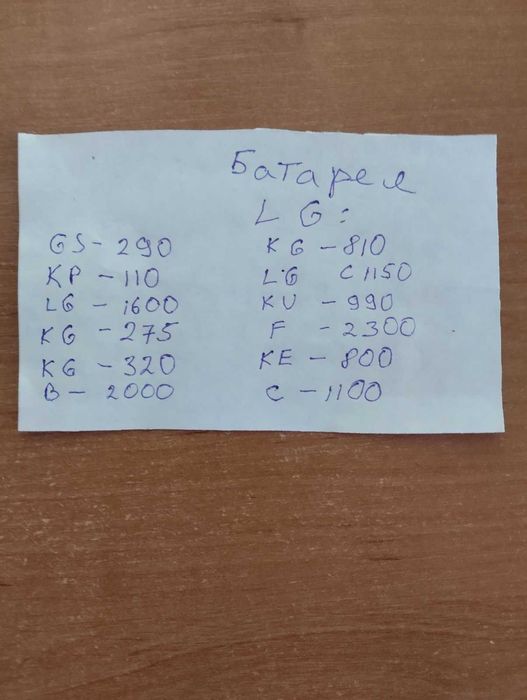 Батарея
LG:
GS - 290
KP - 110
LG - 1600
KG - 275
KG - 320
B - 2000
KG - 810
LG C1150
KU - 990
F - 2300
KE - 800
C - 1100